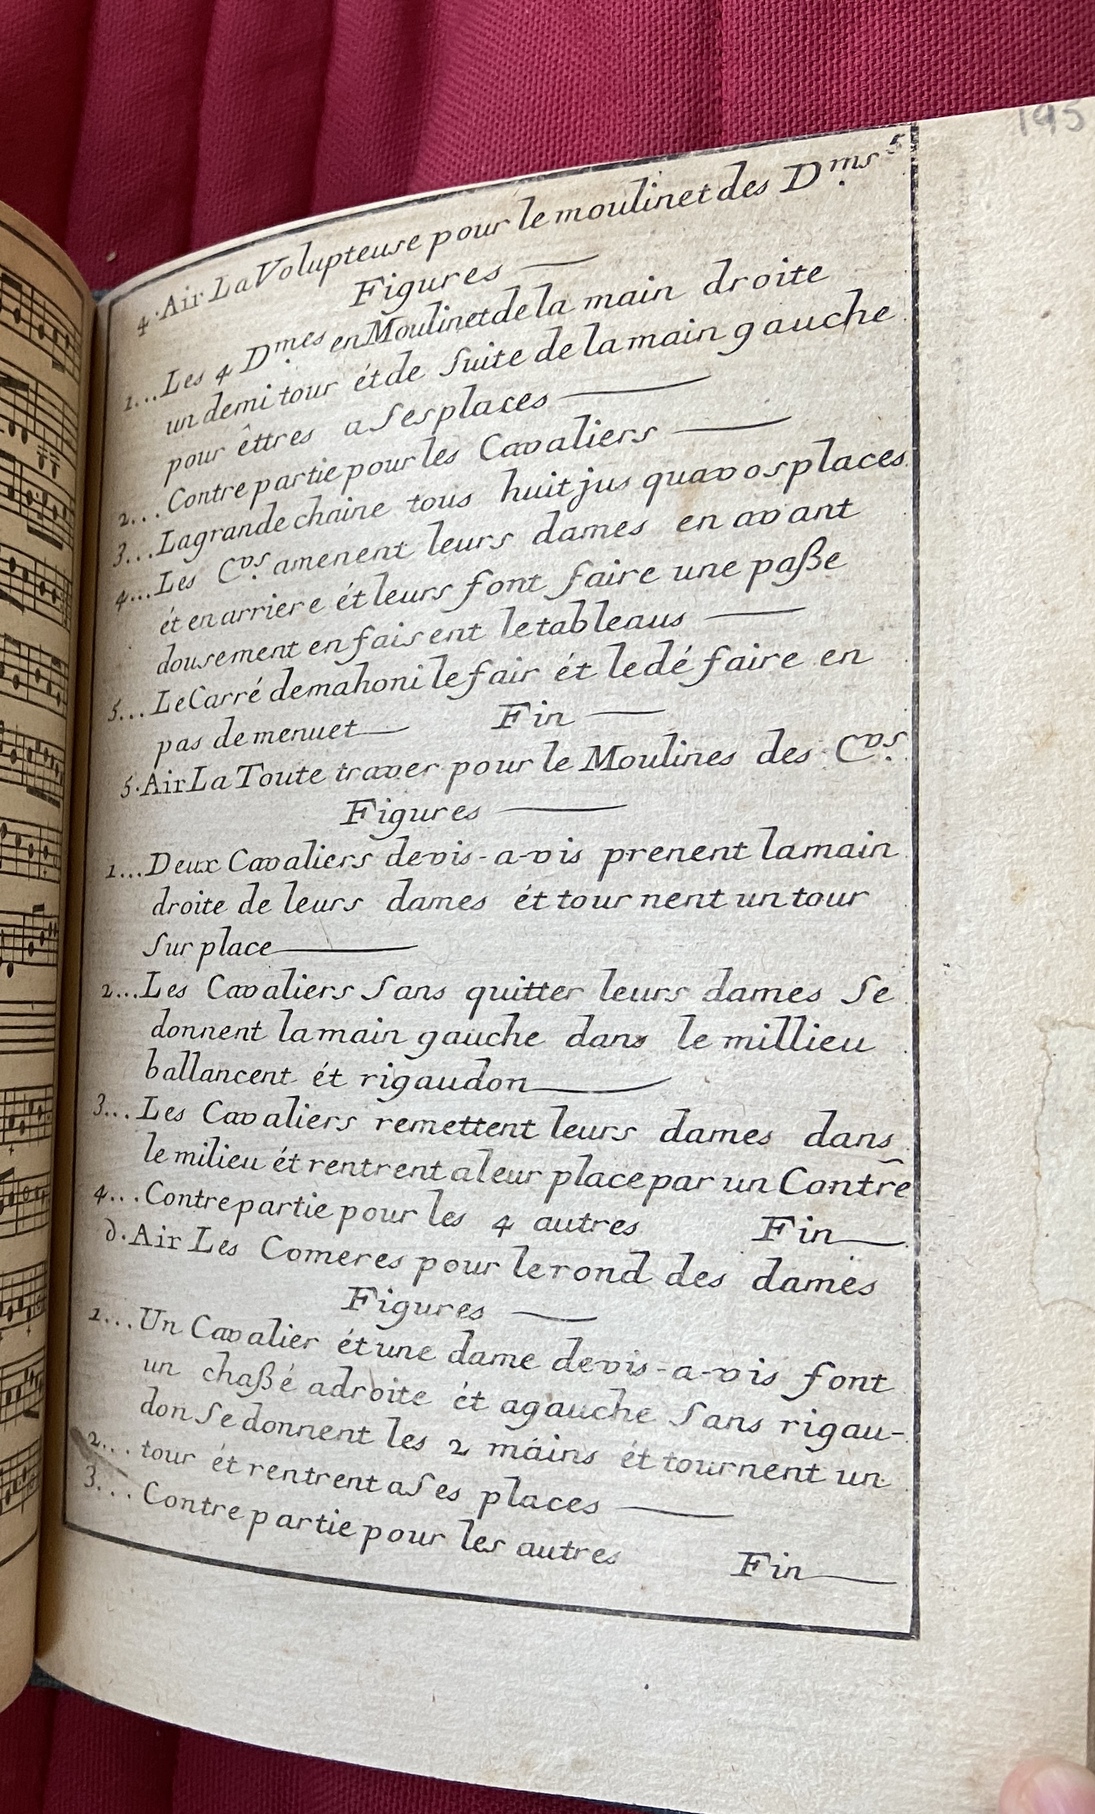 195
5
4. Air La Volupteuse pour le moulinet des D.ms
Figures
1... Les 4 D.mes en Moulinet de la main droite
un demi tour ét de Suite de la main gauche
pour êttres a Ses places
2... Contre partie pour les Cavaliers
3... La grande chaine tous huit jus qua vos places
4... Les C.vs amenent leurs dames en avant
ét en arriere ét leurs font faire une paße
dousement en faisent le tableaus
5... Le Carré de mahoni le fair ét le dé faire en
pas de menuet Fin
5. Air La Toute traver pour le Moulines des C.vs
Figures
1... Deux Cavaliers de vis-a-vis prenent la main
droite de leurs dames ét tour nent un tour
Sur place
2... Les Cavaliers Sans quitter leurs dames Se
donnent la main gauche dans le millieu
ballancent ét rigaudon
3... Les Cavaliers remettent leurs dames dans
le milieu ét rentrent a leur place par un Contrẽ
4... Contre partie pour les 4 autres Fin
6. Air Les Comeres pour le rond des dames
Figures
1... Un Cavalier ét une dame de vis-a-vis font
un chaßé a droite ét a gauche Sans rigau-
don Se donnent les 2 máins ét tournent un
2... tour ét rentrent a Ses places
3... Contre partie pour les autres
Fin